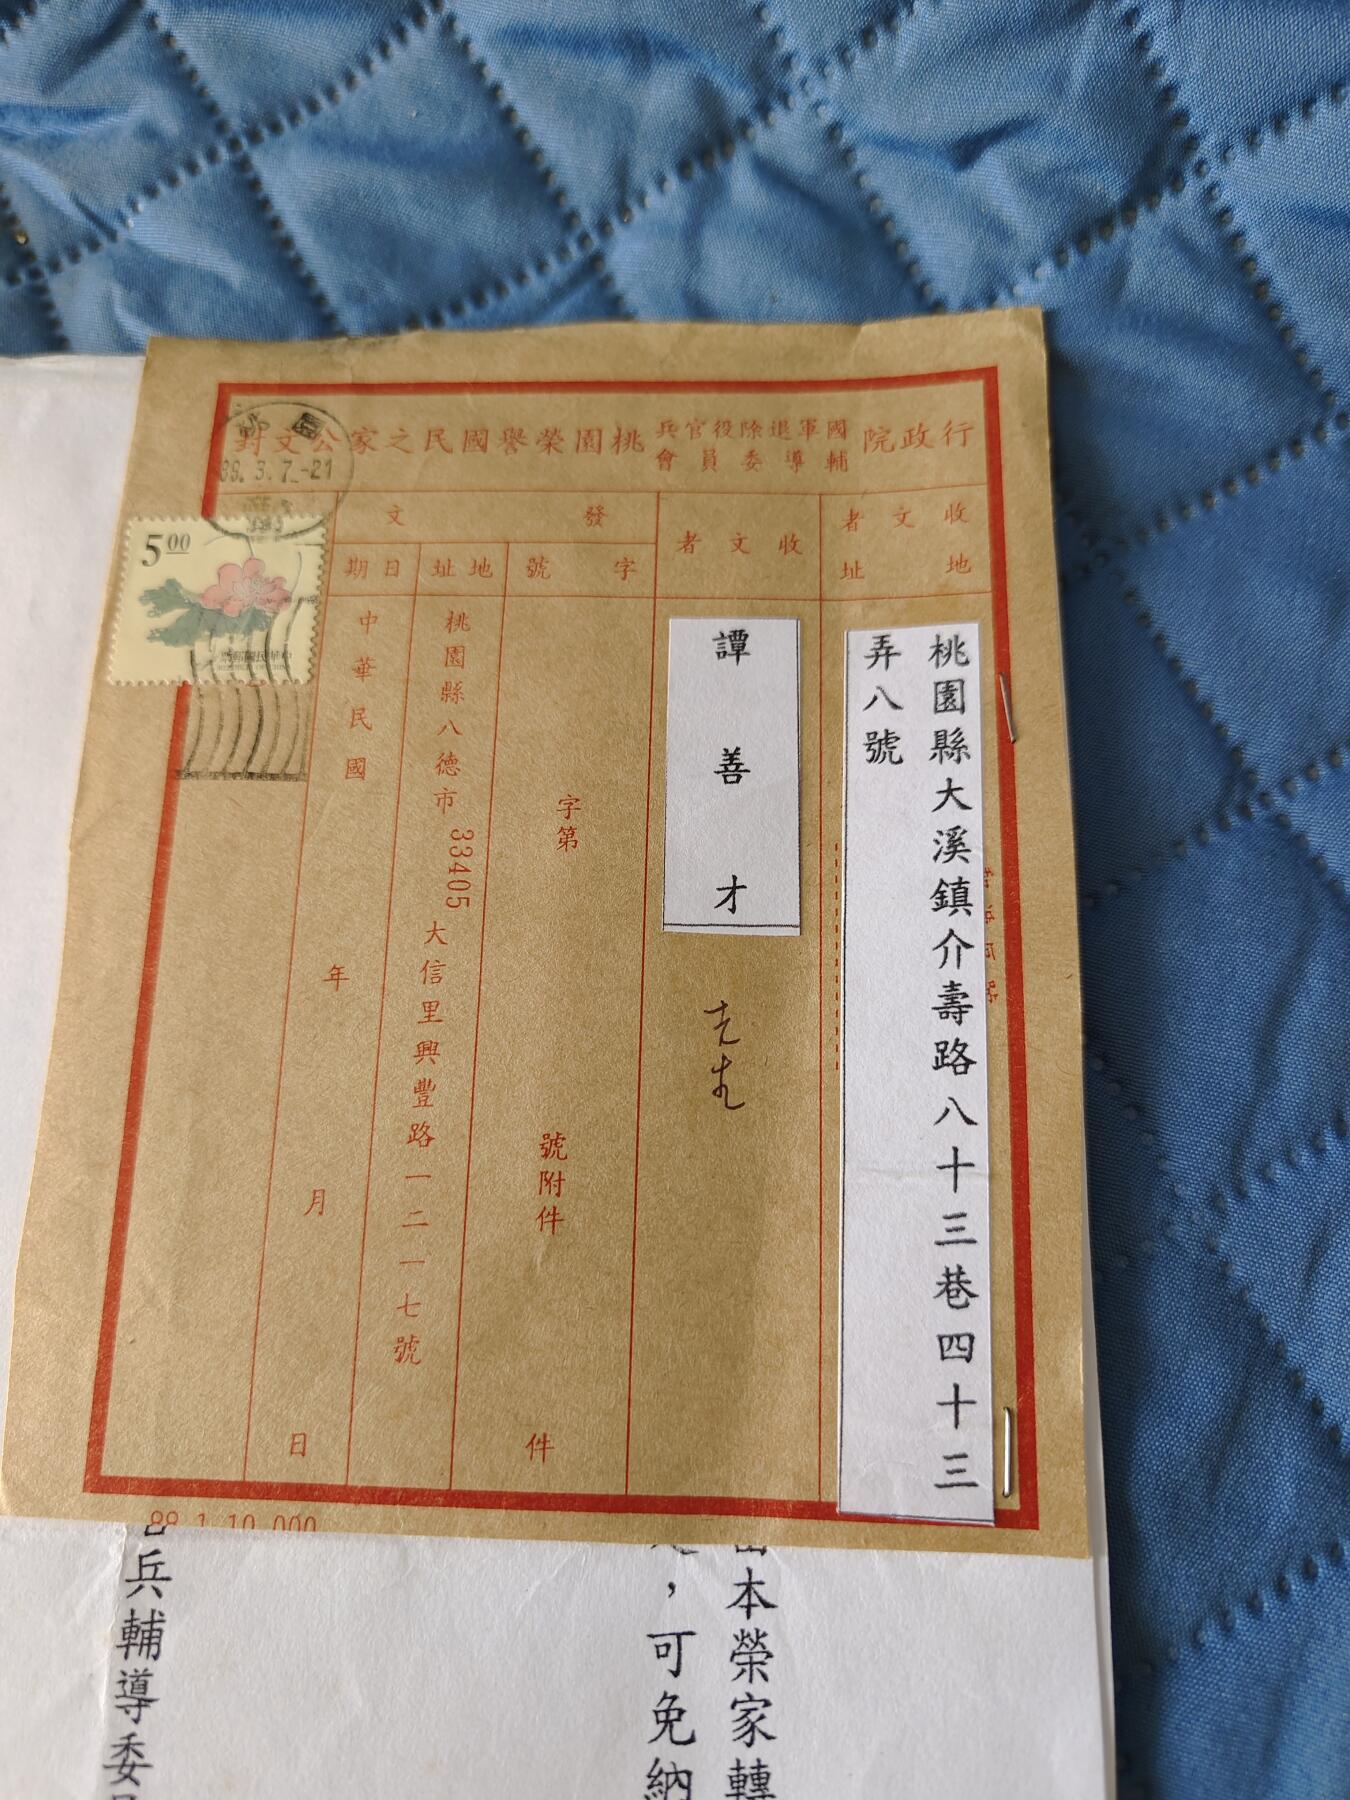 行政院國軍退除役官兵輔導委員會桃園榮譽國民之家公文封
收文者地址
桃園縣大溪鎮介壽路八十三巷四十三
弄八號
收文者
譚善才
先生
發文
字號
字第
號附件
件
地址
桃園縣八德市33405大信里興豐路一二一七號
日期
中華民國
年
月
日
89.3.7.-21
5.00
中華民國郵票
88.1.10,000
本榮家轉
，可免納
兵輔導委